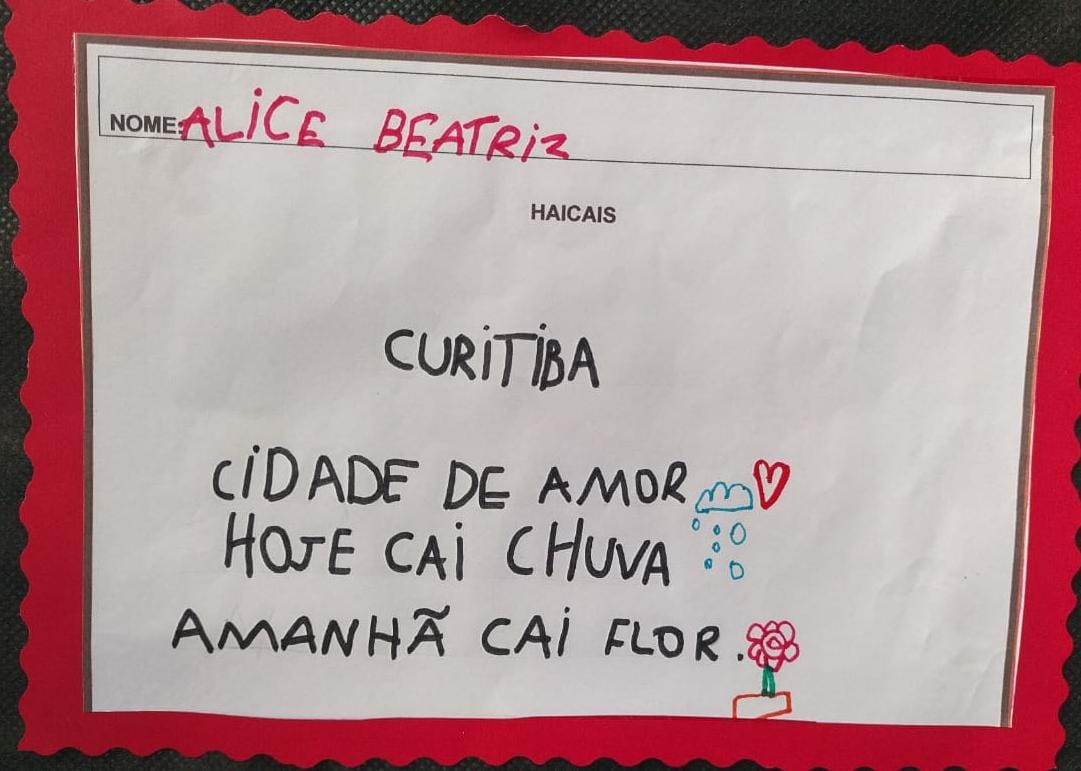 NOME: ALICE BEATRIZ
HAICAIS
CURITIBA
CIDADE DE AMOR
HOJE CAI CHUVA
AMANHÃ CAI FLOR.